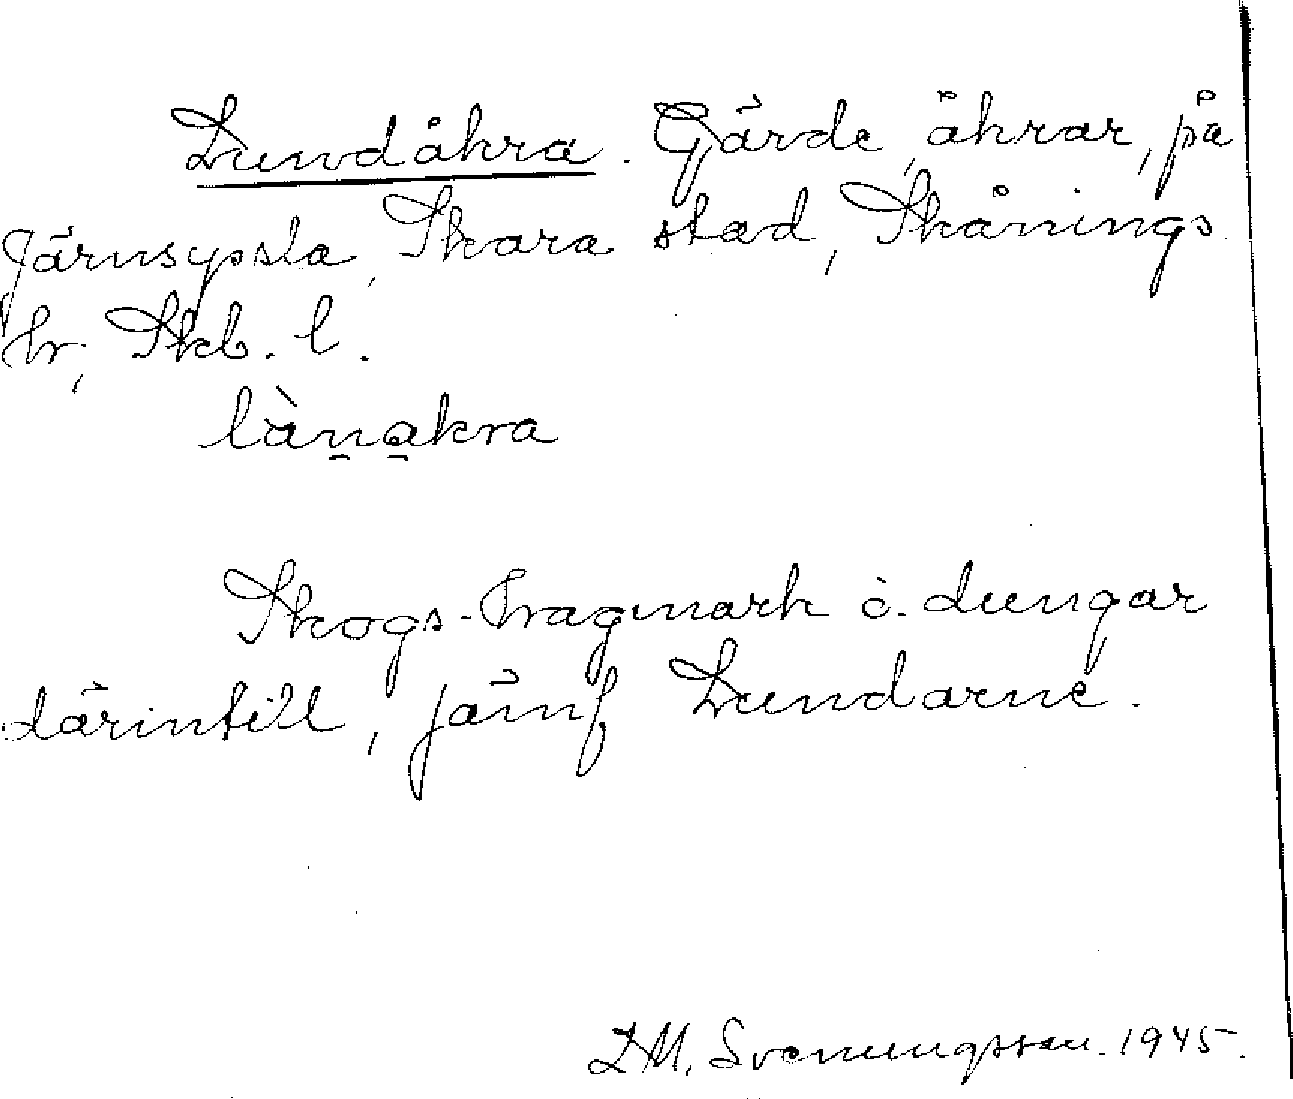 Lundåkra. Gärde, åkrar, på
Järnsyssla, Skara stad, Skånings
hr, Skb. l.
làn̠a̠kra
Skogs-hagmark o. dungar
därintill, jämf Lundarne.
L M. Svenungsson. 1945.